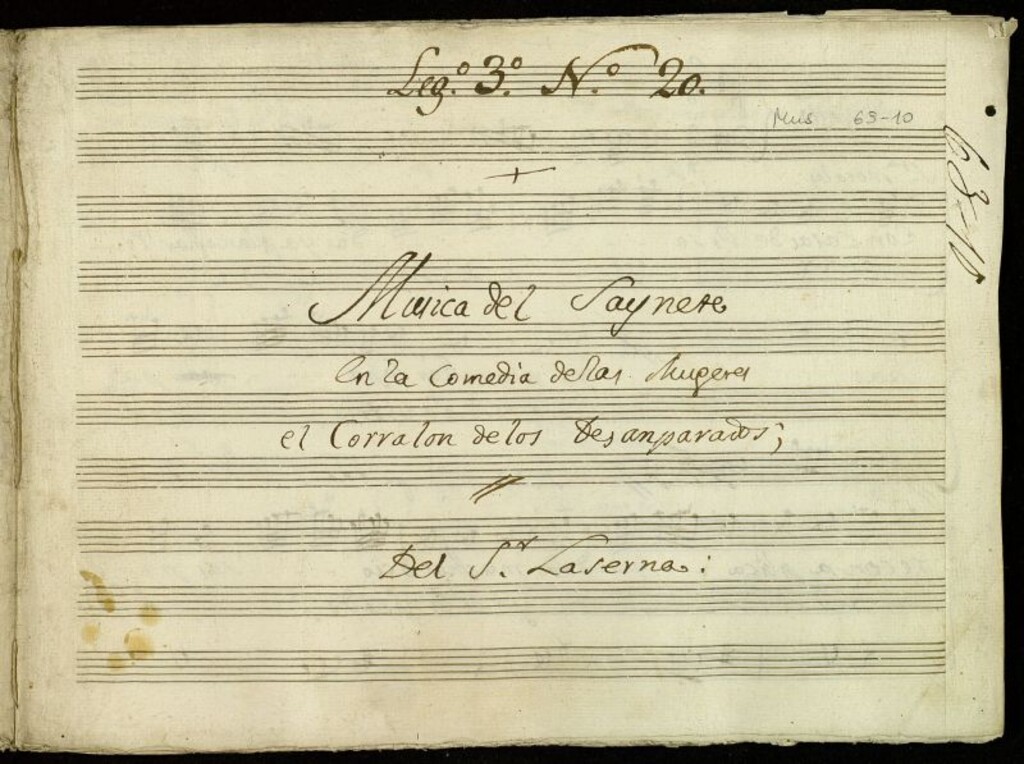 Leg.º 3.º N.º 20.
Mus 63-10
63-10
+
Musica del Saynete
En la Comedia de las Mugeres
el Corralon de los Desanparados;
Del S.r Laserna: